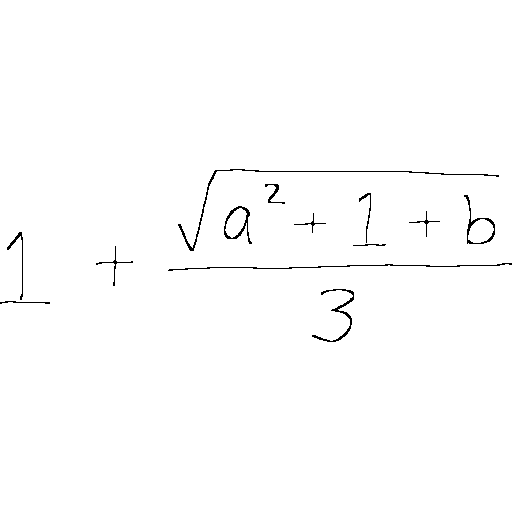 1 + \frac{\sqrt{a^2 + 1 + b}}{3}